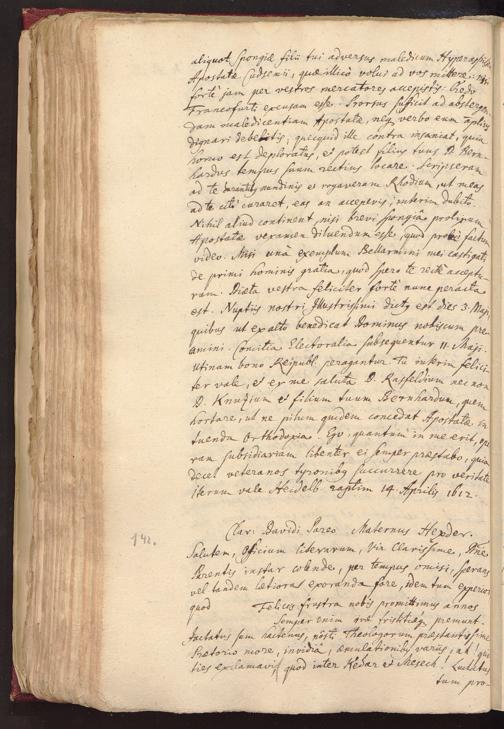 aliquot spongiæ filii tui adversus maledicum Hyperaspisten
Apostatæ Judsenii, quæ illico volui ad vos mittere: nisi
forte jam per vestros mercatores accepistis. Credo
Francofurti excusam esse. Prorsus sufficit ad abstergen-
dam maledicentiam Apostatæ, neq verbo eum amplius
dignari debebitis, quicquid ille contra insaniat, quia
homo est deploratus, et potest filius tuus D. Bern-
hardus tempus suum rectius locare. Scripseram
ad te durantib. nundinis et rogaveram Rhodium, ut meas
ad te cito curaret, eas an acceperis, interim dubito.
Nihil aliud continent, nisi brevi spongia prolixum
Apostatæ examen diluendum esse, quod probe factum
video. Misi una exemplum Bellarmini mei castigati
de primi hominis gratia, quod spero te recte acceptu-
rum. Dieta vestra feliciter forte nunc peracta
est. Nuptiis nostri Illustrissimi dictus est dies 3. Maji
quibus ut ex alto benedicat Dominus nobiscum pre-
camini. Comitia Electoralia subsequentur 11. Maji.
Utinam bono Reipubl. peragantur. Tu interim felici-
ter vale, et ex me saluta D. Rasfeldium nec non
D. Knutzium et filium tuum Bernhardum, quem
hortare, ut ne pilum quidem concedat Apostatæ in
tuenda Orthodoxia. Ego, quantum in me erit, ope-
ram subsidiariam libenter ei semper præstabo, quia
decet veteranos tyronibus succurrere pro veritate
iterum vale Heidelb. raptim 14. Aprilis 1612.
142.
Clar: Davidi Pareo Maternus Heyder.
Salutem, Officium literarum, Vir Clarissime, mihi
Parentis instar colende, per tempus omisi, sperans
vel tandem lætiora exoranda fore, idem tum experior
quod Felices frustra nobis promittimus annos
Semper enim premunt.
Jactatus sum hactenus, nosti Theologorum præstantissime
Prætorio more, invidia, æmulationibus variis, ut quo-
ties exclamavi, quod inter Kedar et Mesech! Luctatus
tum pro-